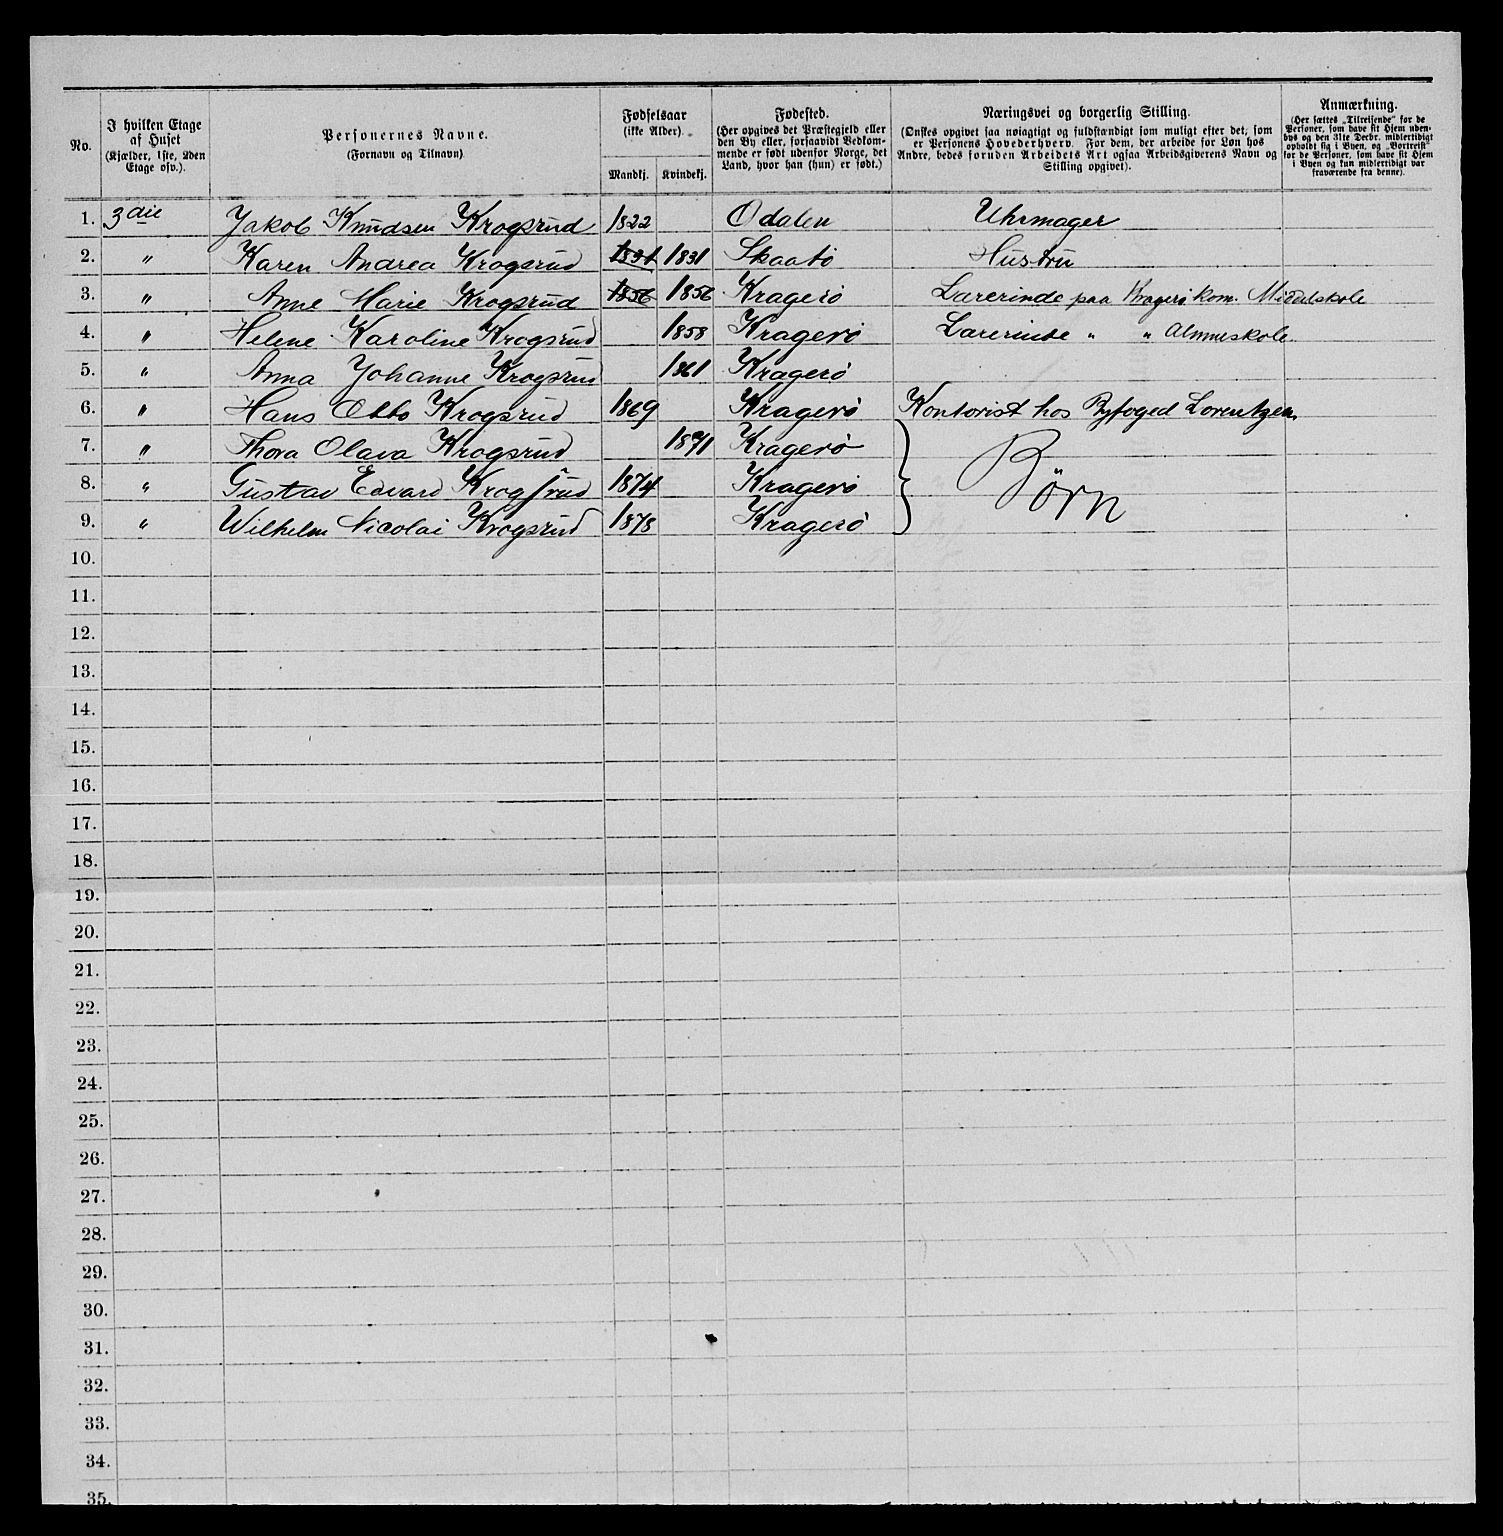 No. | I hvilken Etage af Huset (Kjælder, 1ste, 2den Etage osv.). | Personernes Navne. (Fornavn og Tilnavn) | Fødselsaar (ikke Alder). Mandkj. | Kvindekj. | Fødested. (Her opgives det Præstegjeld eller den By eller, forsaavidt Vedkommende er født udenfor Norge, det Land, hvor han (hun) er født.) | Næringsvei og borgerlig Stilling. (Ønskes opgivet saa nøiagtigt og fuldstændigt som muligt efter det, som er Personens Hovederhverv. For dem, der arbeide for Løn hos Andre, bedes foruden Arbeidets Art ogsaa Arbeidsgiverens Navn og Stilling opgivet). | Anmærkning. (Her sættes „Tilreisende“ for de Personer, som have sit Hjem udenbys og den 31te Decbr. midlertidigt opholdt sig i Byen, og „Bortreist“ for de Personer, som have sit Hjem i Byen og kun midlertidigt var fraværende fra denne).
1. 3die Jakob Knudsen Krogsrud 1822 Odalen Uhrmager
2. " Karen Andrea Krogsrud 1831 1831 Skaatø Hustru
3. " Anne Marie Krogsrud 1856 1856 Kragerø Lærerinde paa Kragerø kom. Middelskole
4. " Helene Karoline Krogsrud 1858 Kragerø Lærerinde " " Almueskole.
5. " Anna Johanne Krogsrud 1861 Kragerø
6. " Hans Otto Krogsrud 1869 Kragerø Kontorist hos Byfoged Lorentzen.
7. " Thora Olava Krogsrud 1871 Kragerø
8. " Gustav Edvard Krogsrud 1874 Kragerø } Børn
9. " Wilhelm Nicolai Krogsrud 1878 Kragerø
10.
11.
12.
13.
14.
15.
16.
17.
18.
19.
20.
21.
22.
23.
24.
25.
26.
27.
28.
29.
30.
31.
32.
33.
34.
35.